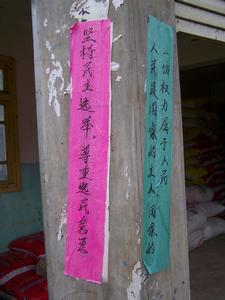 坚持民主选举，尊重选民意愿
人民是国家的主人，国家的
一切权力属于人民